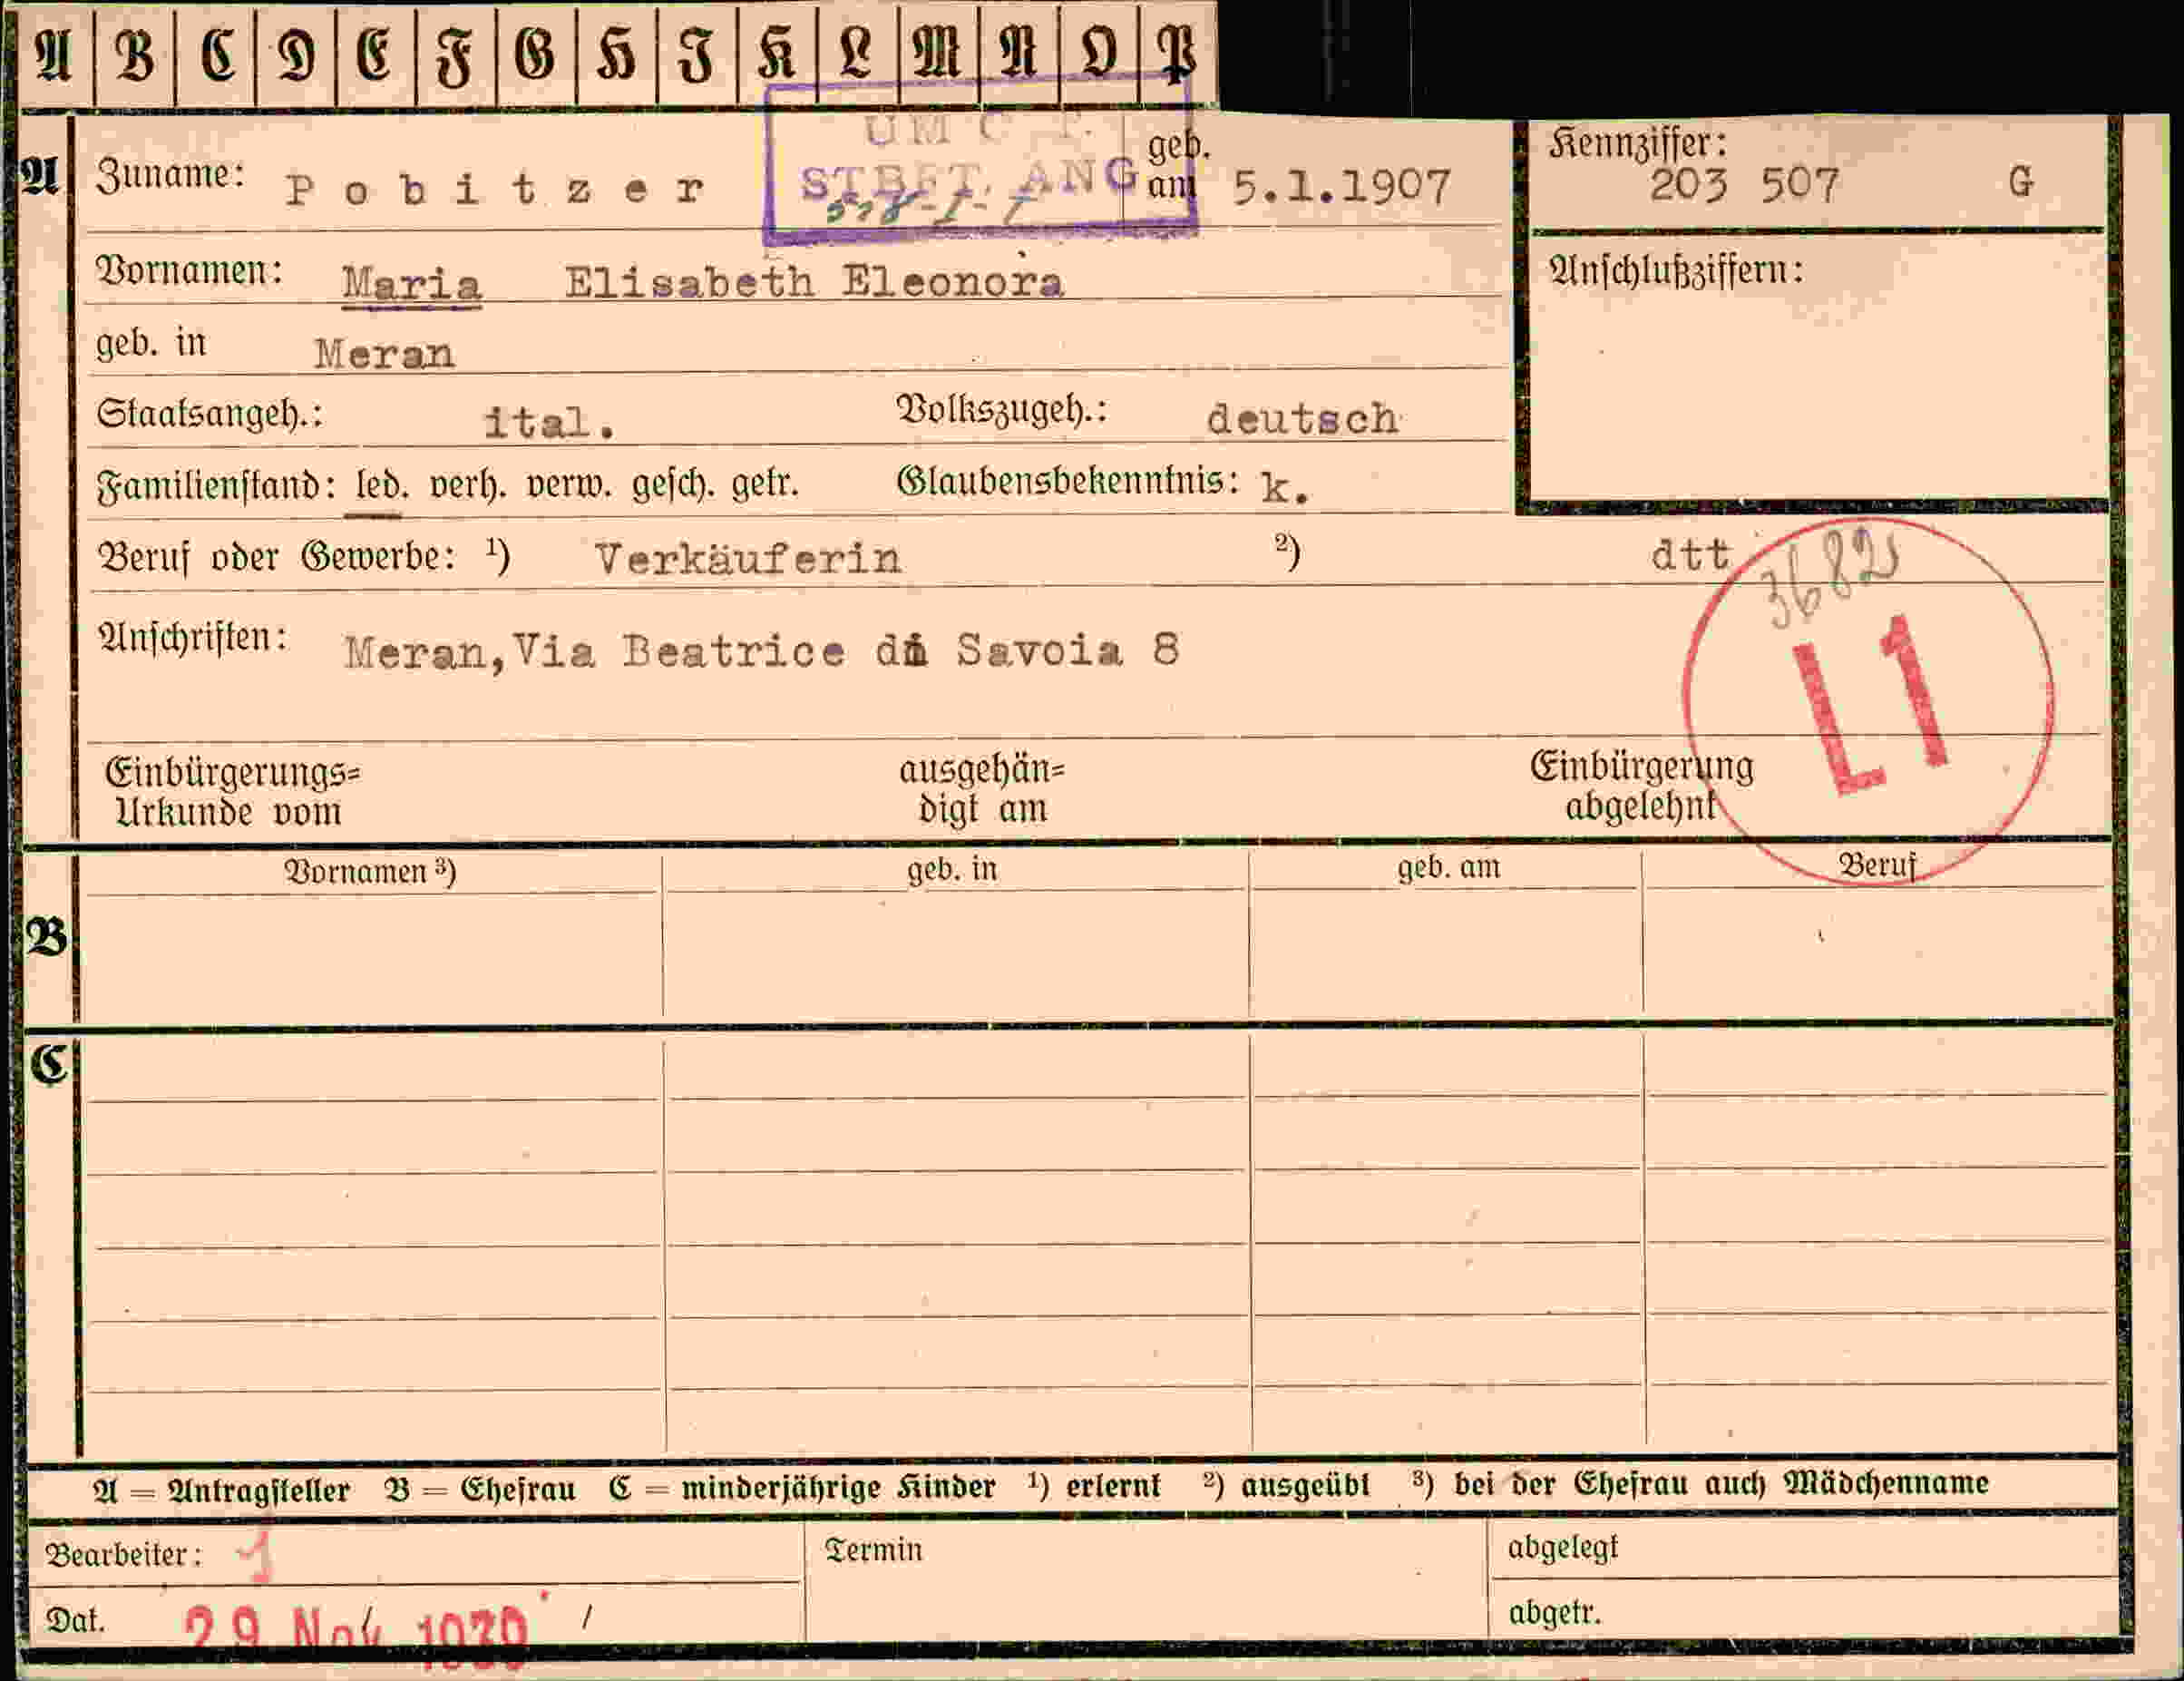 A B C D E F G H J K L M N O P
A
Zuname: Pobitzer
geb. am 5.1.1907
Kennziffer:
203 507 G
Vornamen: Maria Elisabeth Eleonora
Anschlußziffern:
geb. in Meran
Staatsangeh.: ital. Volkszugeh.: deutsch
Familienstand: led. verh. verw. gesch. getr. Glaubensbekenntnis: k.
Beruf oder Gewerbe: ¹) Verkäuferin ²) dtt
L1
Anschriften: Meran, Via Beatrice di Savoia 8
Einbürgerungs=
Urkunde vom
ausgehän=
digt am
Einbürgerung
abgelehnt
Vornamen ³) geb. in geb. am Beruf
B
C
A = Antragsteller B = Ehefrau C = minderjährige Kinder ¹) erlernt ²) ausgeübt ³) bei der Ehefrau auch Mädchenname
Bearbeiter: 1 Termin abgelegt
Dat. 29 Nov. 1939 / abgetr.